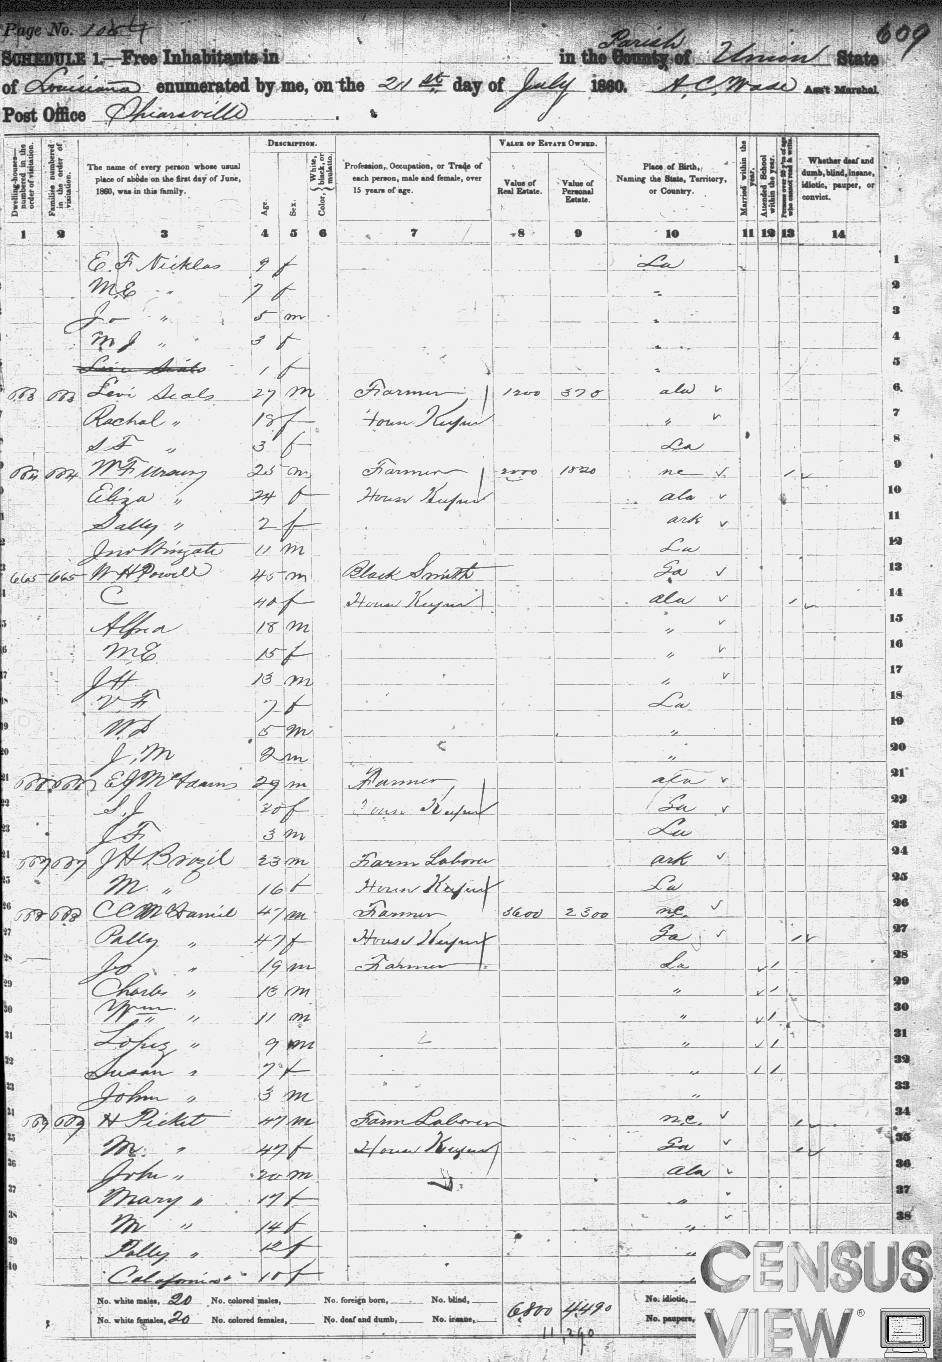 Page No. 1084
609
SCHEDULE 1.—Free Inhabitants in in the County of Parish Union State
of Louisiana enumerated by me, on the 21st day of July 1860. A. C. Wade Ass't Marshal.
Post Office
Dwelling-houses— numbered in the order of visitation.
Families numbered in the order of visitation.
The name of every person whose usual place of abode on the first day of June, 1860, was in this family.
DESCRIPTION.
Age.
Sex.
Color, White, black, or mulatto.
Profession, Occupation, or Trade of each person, male and female, over 15 years of age.
VALUE OF ESTATE OWNED.
Value of Real Estate.
Value of Personal Estate.
Place of Birth, Naming the State, Territory, or Country.
Married within the year.
Attended School within the year.
Persons over 20 y'rs of age who cannot read & write.
Whether deaf and dumb, blind, insane, idiotic, pauper, or convict.
1 2 3 4 5 6 7 8 9 10 11 12 13 14
E. F. Nicklas 9 f La 1
M E " 7 f " 2
Jo " 5 m " 3
M J " 3 f " 4
1 f " 5
663 663 Levi Seals 27 m Farmer 1200 370 ala 6
Rachal " 18 f House Keeper " 7
S F " 3 f La 8
664 664 W F 25 m Farmer 2000 1820 nc 9
Eliza " 24 f House Keeper ala 10
Sally " 2 f ark 11
Jno Wingate 11 m La 12
665 665 W H Powell 45 m Black Smith Ga 13
C 40 f House Keeper ala 14
Alfred 18 m " 15
M E 15 f " 16
J H 13 m " 17
V F 7 f La 18
W D 5 m " 19
J. M 2 m " 20
666 666 E J McAdams 29 m Farmer ala 21
S. J 20 f House Keeper Ga 22
J F 3 m La 23
667 667 J H Brazil 23 m Farm Laborer ark 24
M. " 16 f House Keeper La 25
668 668 C C McDaniel 47 m Farmer 3600 2300 n.c. 26
Polly " 47 f House Keeper Ga 27
Jo " 19 m Farmer La 1 28
Charles " 13 m " 1 29
Wm " 11 m " 1 30
Lopez " 9 m " 1 31
Susan " 7 f " 1 32
John " 3 m " 33
669 669 H Picket 47 m Farm Laborer n.c. 1 34
M. " 47 f House Keeper Ga 1 35
John " 20 m Ala 36
Mary " 17 f " 37
M " 14 f " 38
Polly " 12 f "
" 10 f "
No. white males, 20 No. colored males, No. foreign born, No. blind, 6800 4490 No. idiotic,
No. white females, 20 No. colored females, No. deaf and dumb, No. insane, No. paupers,
11,290
CENSUS
VIEW®